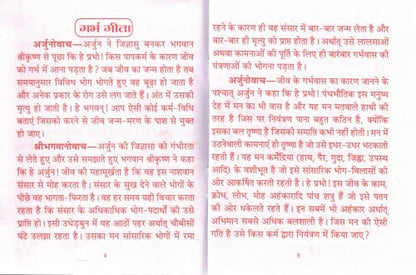 गर्भ गीता
अर्जुनोवाच—अर्जुन ने जिज्ञासु बनकर भगवान
श्रीकृष्ण से पूछा कि हे प्रभो! किस पापकर्म के कारण जीव
को गर्भ में आना पड़ता है? जब जीव का जन्म होता है तब
समयानुसार विविध भोग भोगते हुए वह बूढ़ा हो जाता है
और अनेक प्रकार के रोग उसे लग जाते हैं। अंत में उसकी
मृत्यु हो जाती है। हे भगवन्! आप ऐसी कोई कर्म-विधि
बताएं जिसको करने से जीव जन्म-मरण के पाश से मुक्त
हो जाए।
श्रीभगवानोवाच—अर्जुन की जिज्ञासा को गंभीरता
से लेते हुए और उसे समझाते हुए भगवान श्रीकृष्ण ने कहा
कि हे अर्जुन! जीव की महामूर्खता है कि वह इस नाशवान
संसार से मोह करता है। संसार के सुख देने वाले भोगों के
पीछे वह भागता-फिरता है। वह हर समय यही विचार करता
रहता है कि संसार के अधिकाधिक भोग-पदार्थों की उसे
प्राप्ति हो। इसी उधेड़बुन में वह आठों पहर अर्थात् चौबीसों
घंटे उलझा रहता है। उसका मन सांसारिक भोगों में रमा
4
रहने के कारण ही वह संसार में बार-बार जन्म लेता है और
बार-बार ही मृत्यु को प्राप्त होता है। अर्थात् उसे लालसाओं
अथवा कामनाओं की पूर्ति के लिए ही बारंबार गर्भवास की
यंत्रणाओं को भोगना पड़ता है।
अर्जुनोवाच—जीव के गर्भवास का कारण जानने के
पश्चात् अर्जुन ने कहा कि हे प्रभो! पंचभौतिक इस मनुष्य
देह में मन का भी वास है और यह मन मतवाले हाथी की
तरह है जिस पर नियंत्रण पाना बहुत कठिन है, क्योंकि
इसका बल तृष्णा है जिसकी समाप्ति कभी नहीं होती। मन में
उठनेवाली कामनाएं ही तृष्णा है जो उसे इधर-उधर भटकाती
रहती हैं। यह मन कर्मेंद्रिया (हाथ, पैर, गुदा, जिह्वा, उपस्थ
आदि) के वशीभूत है जो इसे सांसारिक भोग-विलासों की
ओर आकर्षित करती रहती है। हे प्रभो! इस जीव के काम,
क्रोध, लोभ, मोह अहंकारादि पांच शत्रु हैं जो इसे पतन
की ओर धकेलते रहते हैं। इन सबमें भी अहंकार अर्थात्
अभिमान सबसे अधिक बलशाली है। जिस मन की ऐसी
गति है उसे किस कर्म द्वारा नियंत्रण में किया जाए?
5